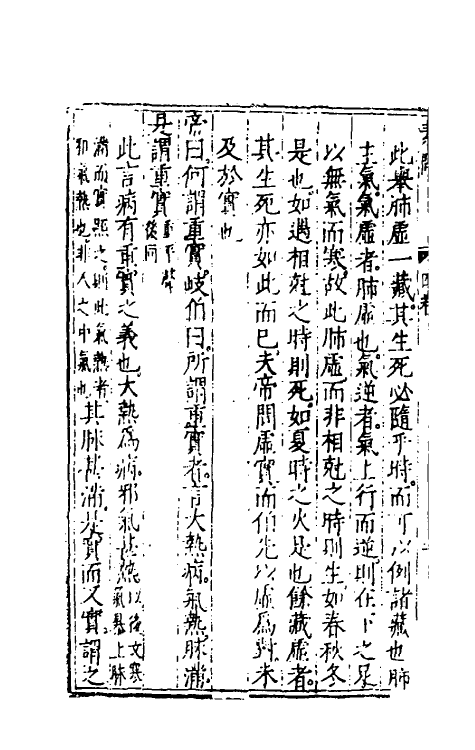 此舉肺虛一藏其生死必隨乎時而可以例諸藏也肺
主氣氣虛者肺虛也氣逆者氣上行而逆則在下之足
以無氣而寒故此肺虛而非相尅之時則生如春秋冬
是也如遇相尅之時則死如夏時之火是也餘藏虛者
其生死亦如此而已夫帝問虛實而伯先以虛爲對未
及於實也
帝曰何謂重實岐伯曰所謂重實者言大熱病氣熱脉滿
是謂重實重平聲後同
此言病有重實之義也大熱爲病邪氣甚熱以後文寒氣暴上脉
滿而實照之則此氣熱者邪氣熱也非人之中氣也其脉甚滿是實而又實謂之